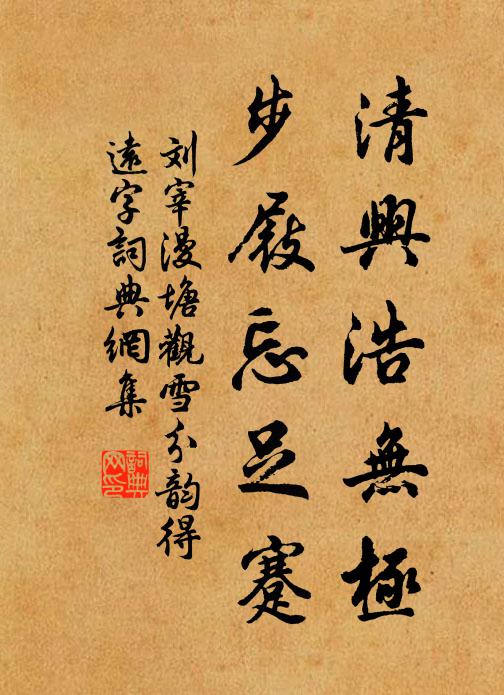 清興浩無極
步屐忘足蹇
刘宰漫塘觀雪分韵得
遠字詞典網集
詞典
网印